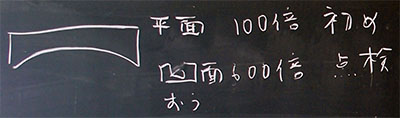 平面 100倍 初め
凹面 600倍 点検
おう